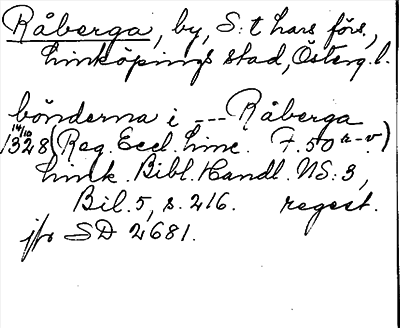 Råberga, by, S:t Lars förs.,
Linköpings stad, Österg. l.
bönderna i --- Råberga
14/10
1328 (Reg. Eccl. Linc. F. 50 u-v)
Link. Bibl. Handl. NS: 3,
Bil. 5, s. 216. regest.
jfr SD 2681.